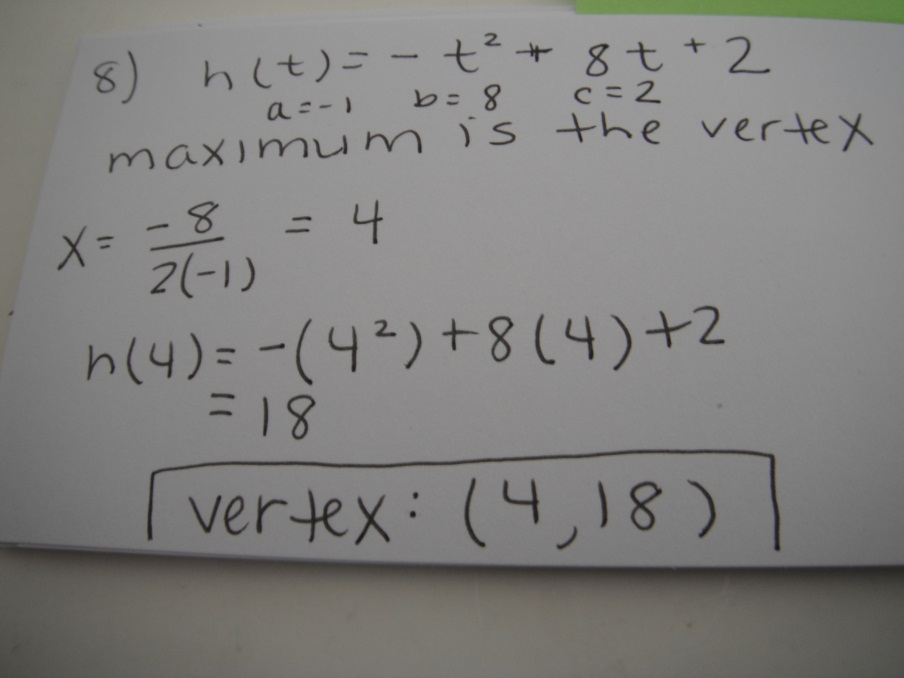 8) h(t) = - t² + 8t + 2
a = -1 b = 8 c = 2
maximum is the vertex
x = -8/2(-1) = 4
h(4) = -(4²) + 8(4) + 2
= 18
vertex: (4, 18)